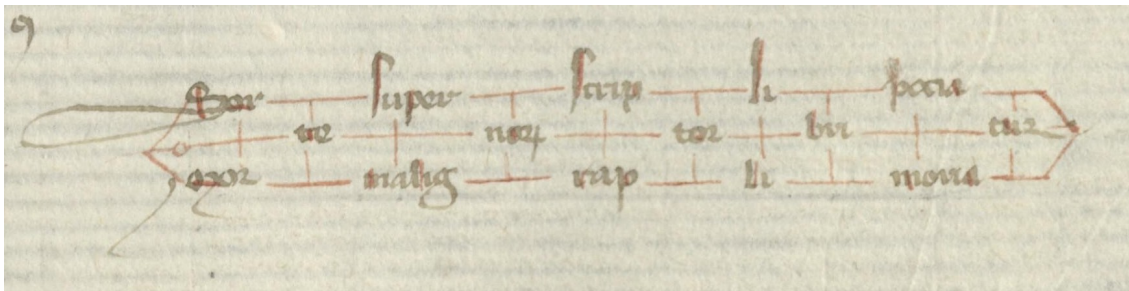 Sor super scrip li pocia
te noꝝ tor bri tur
Mor malig rap li moria